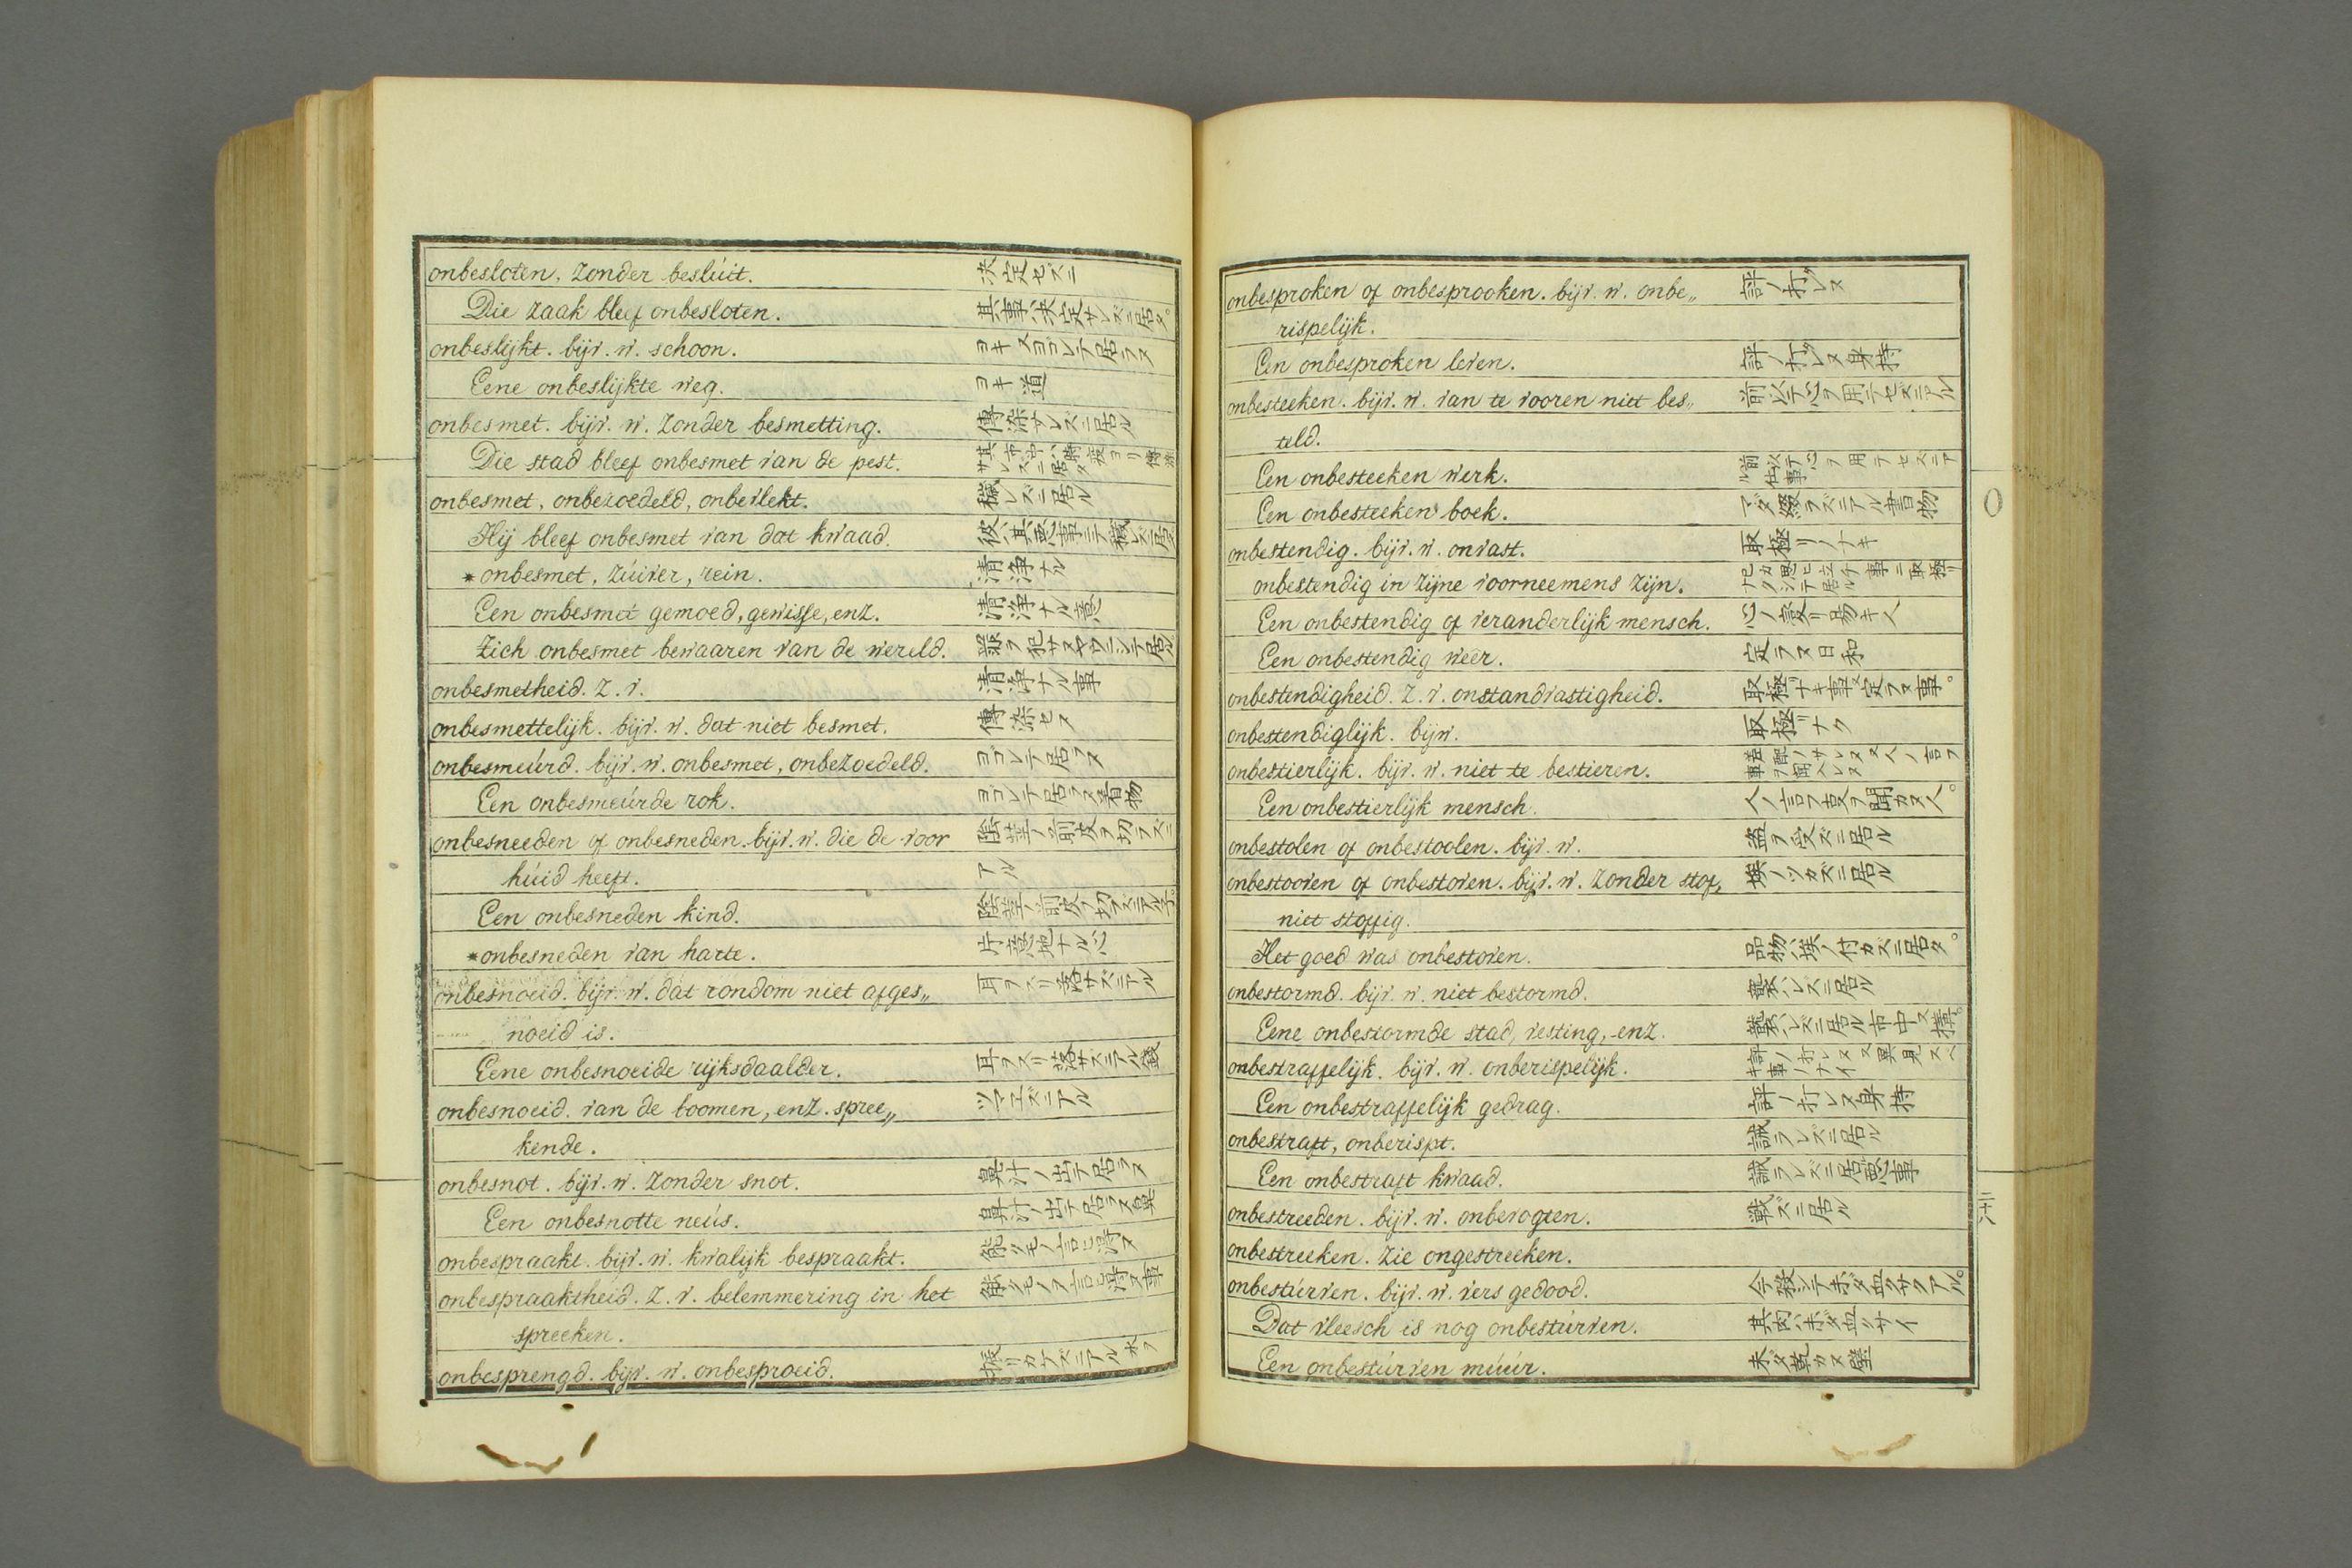 onbesloten, zonder beslúit. 決定セズニ
Die zaak bleef onbesloten. 其事ハ決定サレズニ居タ。
onbeslijkt. bijv. w. schoon. ヨキ又ヨゴレテ居ラヌ
Eene onbeslijkte weg. ヨキ道
onbesmet. bijv. w. zonder besmetting. 傳染サレズニ居ル
Die stad bleef onbesmet van de pest. 其市中ハ時疫ヨリ傳染サレズニ居タ
onbesmet, onbezoedeld, onbevlekt. 穢レズニ居ル
Hij bleef onbesmet van dat kwaad. 彼ハ其悪事ニテ穢レズニ居タ
* onbesmet, zúiver, rein. 清浄ナル
Een onbesmet gemoed, gewisse, enz. 清浄ナル意
Zich onbesmet bewaaren van de wereld. 罪ヲ犯サヌヤウニシテ居ル
onbesmetheid. z. v. 清浄ナル事
onbesmettelijk. bijv. w. dat niet besmet. 傳染セヌ
onbesmeúrd. bijv. w. onbesmet, onbezoedeld. ヨゴレテ居ラヌ
Een onbesmeúrde rok. ヨゴレテ居ラヌ着物
onbesneeden of onbesneden. bijv. w. die de voor 陰茎ノ前皮ヲ切ラズニ
húid heeft. アル
Een onbesneden kind. 陰茎ノ前皮ヲ切ラズニアル子
* onbesneden van harte. 片意地ナル心
onbesnoeid. bijv. w. dat rondom niet afges„ 耳ヲスリ落サズニアル
noeid is.
Eene onbesnoeide rijksdaalder. 耳ヲスリ落サズニアル銀
onbesnoeid. van de boomen, enz. spree„ ツマエズニアル
kende.
onbesnot. bijv. w. zonder snot. 鼻汁ノ出テ居ラヌ
Een onbesnotte neús. 鼻汁ノ出テ居ラヌ鼻
onbespraakt. bijv. w. kwalijk bespraakt. 能クモノ言ヒ得ヌ
onbespraaktheid. z. v. belemmering in het 能クモノヲ言ヒ得ヌ事
spreeken.
onbesprengd. bijv. w. onbesproeid. 振リカケズニアル
onbesproken of onbesprooken. bijv. w. onbe„ 評ノ打レヌ
rispelijk.
Een onbesproken leven. 評ノ打レヌ身持
onbesteeken. bijv. w. van te vooren niet bes„ 前以テ心ヲ用ラセズニアル
teld.
Een onbesteeken werk. 前以テ心ヲ用ラセズニアル仕事
Een onbesteeken boek. マダ綴ラズニアル書物
onbestendig. bijv. w. onvast. 取極リノナキ
onbestendig in zijne voorneemens zijn. 己カ思ヒ立チ事ニ取極リナクシテ居ル
Een onbestendig of veranderlijk mensch. 心ノ変リ易キ人
Een onbestendig weêr. 定ラヌ日和
onbestendigheid. z. v. onstandvastigheid. 取極ナキ事又定ラヌ事。
onbestendiglijk. bijw. 取極ナク
onbestierlijk. bijv. w. niet te bestieren.
Een onbestierlijk mensch. 人ノ言フ事ヲ聞カヌ人。
onbestolen of onbestoolen. bijv. w. 盗ヲ受ズニ居ル
onbestooven of onbestoven. bijv. w. zonder stof, 埃ノツカズニ居ル
niet stoffig.
Het goed was onbestoven. 品物ハ埃ノ付カズニ居タ。
onbestormd. bijv. w. niet bestormd. 襲ハレズニ居ル
Eene onbestormde stad, vesting, enz. 襲ハレズニ居ル市中又搆。
onbestraffelijk. bijv. w. onberispelijk. 評ノ打レヌ又異見スベキ事ノナイ
Een onbestraffelijk gedrag. 評ノ打レヌ身持
onbestraft, onberispt. 誡ラレズニ居ル
Een onbestraft kwaad. 誡ラレズニ居悪事
onbestreeden. bijv. w. onbevogten. 戦ズニ居ル
onbestreeken. zie ongestreeken.
onbestúrven. bijv. w. vers gedood. 今殺シテ未ダ血クサクアル。
Dat vleesch is nog onbestúrven. 其肉ハ未ダ血クサイ
Een onbestúrven múúr. 未タ乾カヌ壁